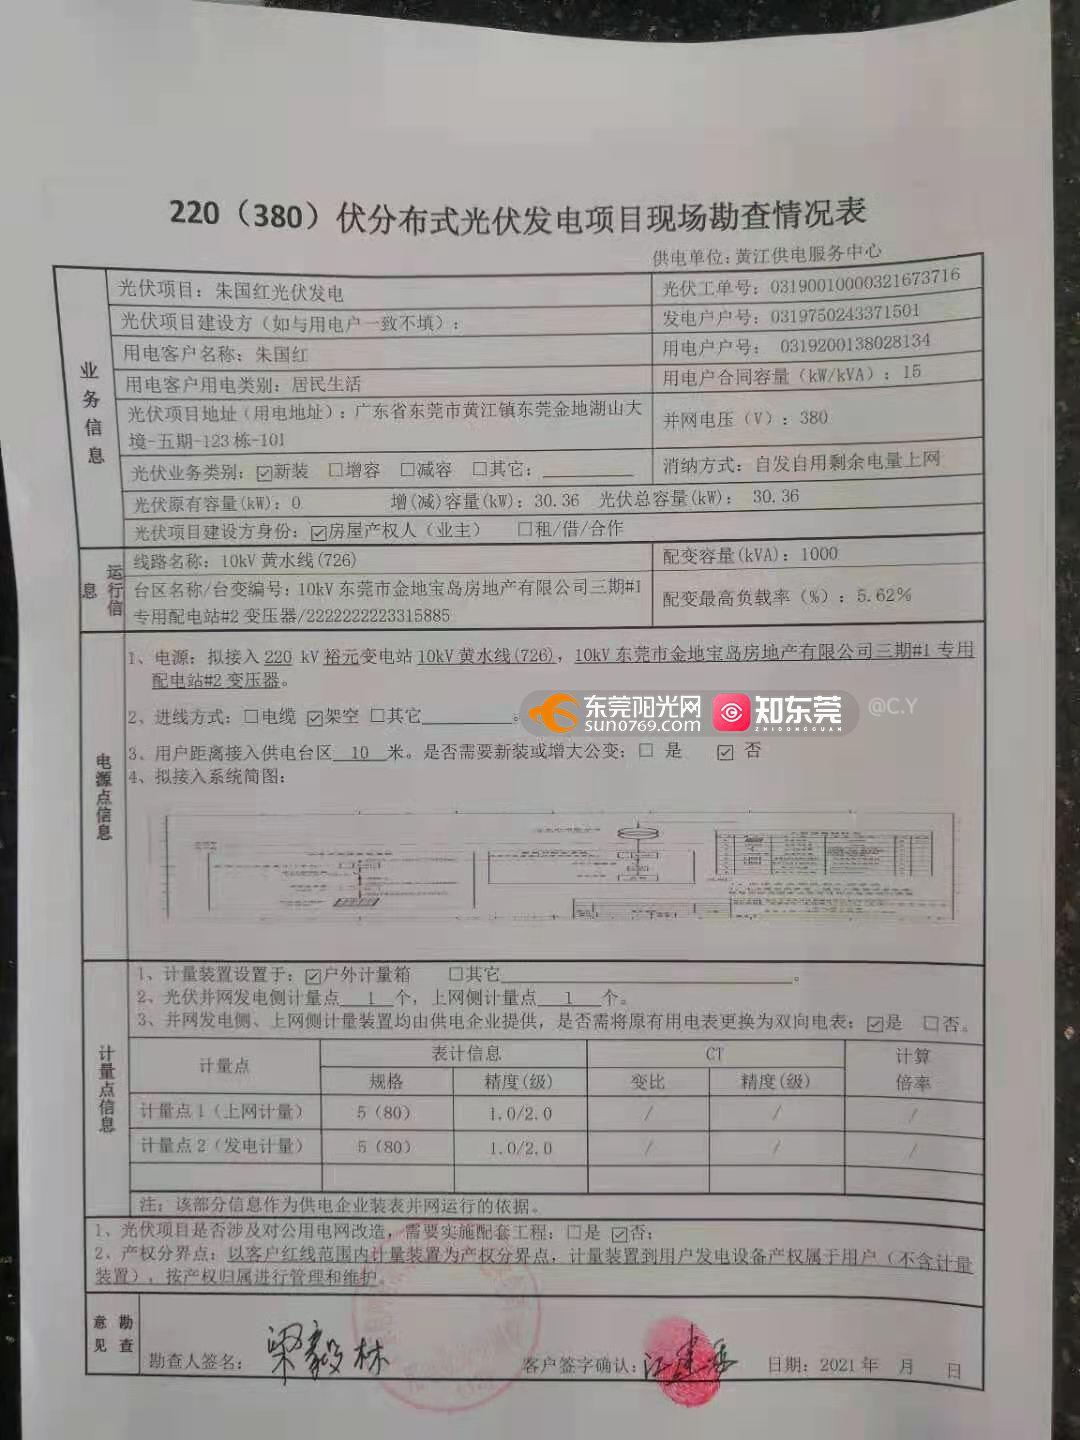 220（380）伏分布式光伏发电项目现场勘查情况表
供电单位：黄江供电服务中心
业务信息
光伏项目：朱国红光伏发电
光伏工单号：03190010000321673716
光伏项目建设方（如与用电户一致不填）：
发电户户号：0319750243371501
用电客户名称：朱国红
用电户户号： 0319200138028134
用电客户用电类别：居民生活
用电户合同容量（kW/kVA）：15
光伏项目地址（用电地址）：广东省东莞市黄江镇东莞金地湖山大
境-五期-123栋-101
并网电压（V）：380
光伏业务类别：☑新装 □增容 □减容 □其它：
消纳方式：自发自用剩余电量上网
光伏原有容量(kW)：0 增(减)容量(kW)：30.36 光伏总容量(kW)： 30.36
光伏项目建设方身份：☑房屋产权人（业主） □租/借/合作
运行信息
线路名称：10kV 黄水线(726)
配变容量(kVA)：1000
台区名称/台变编号：10kV 东莞市金地宝岛房地产有限公司三期#1
专用配电站#2 变压器/2222222223315885
配变最高负载率（%）：5.62%
电源点信息
1、电源：拟接入 220 kV 裕元变电站 10kV 黄水线(726)，10kV 东莞市金地宝岛房地产有限公司三期#1 专用
配电站#2 变压器。
2、进线方式：□电缆 ☑架空 □其它 。
东莞阳光网
sun0769.com
知东莞
ZHIDONGGUAN
@C.Y
3、用户距离接入供电台区 10 米。是否需要新装或增大公变：□ 是 ☑ 否
4、拟接入系统简图：
计量点信息
1、计量装置设置于：☑户外计量箱 □其它 。
2、光伏并网发电侧计量点 1 个，上网侧计量点 1 个。
3、并网发电侧、上网侧计量装置均由供电企业提供，是否需将原有用电表更换为双向电表：☑是 □否。
计量点 表计信息 CT 计算倍率
规格 精度(级) 变比 精度(级)
计量点1（上网计量） 5（80） 1.0/2.0 / / /
计量点2（发电计量） 5（80） 1.0/2.0 / / /
注：该部分信息作为供电企业装表并网运行的依据。
1、光伏项目是否涉及对公用电网改造，需要实施配套工程：□是 ☑否；
2、产权分界点：以客户红线范围内计量装置为产权分界点，计量装置到用户发电设备产权属于用户（不含计量
装置），按产权归属进行管理和维护。
勘查意见
勘查人签名：梁毅林
客户签字确认：
日期：2021年 月 日